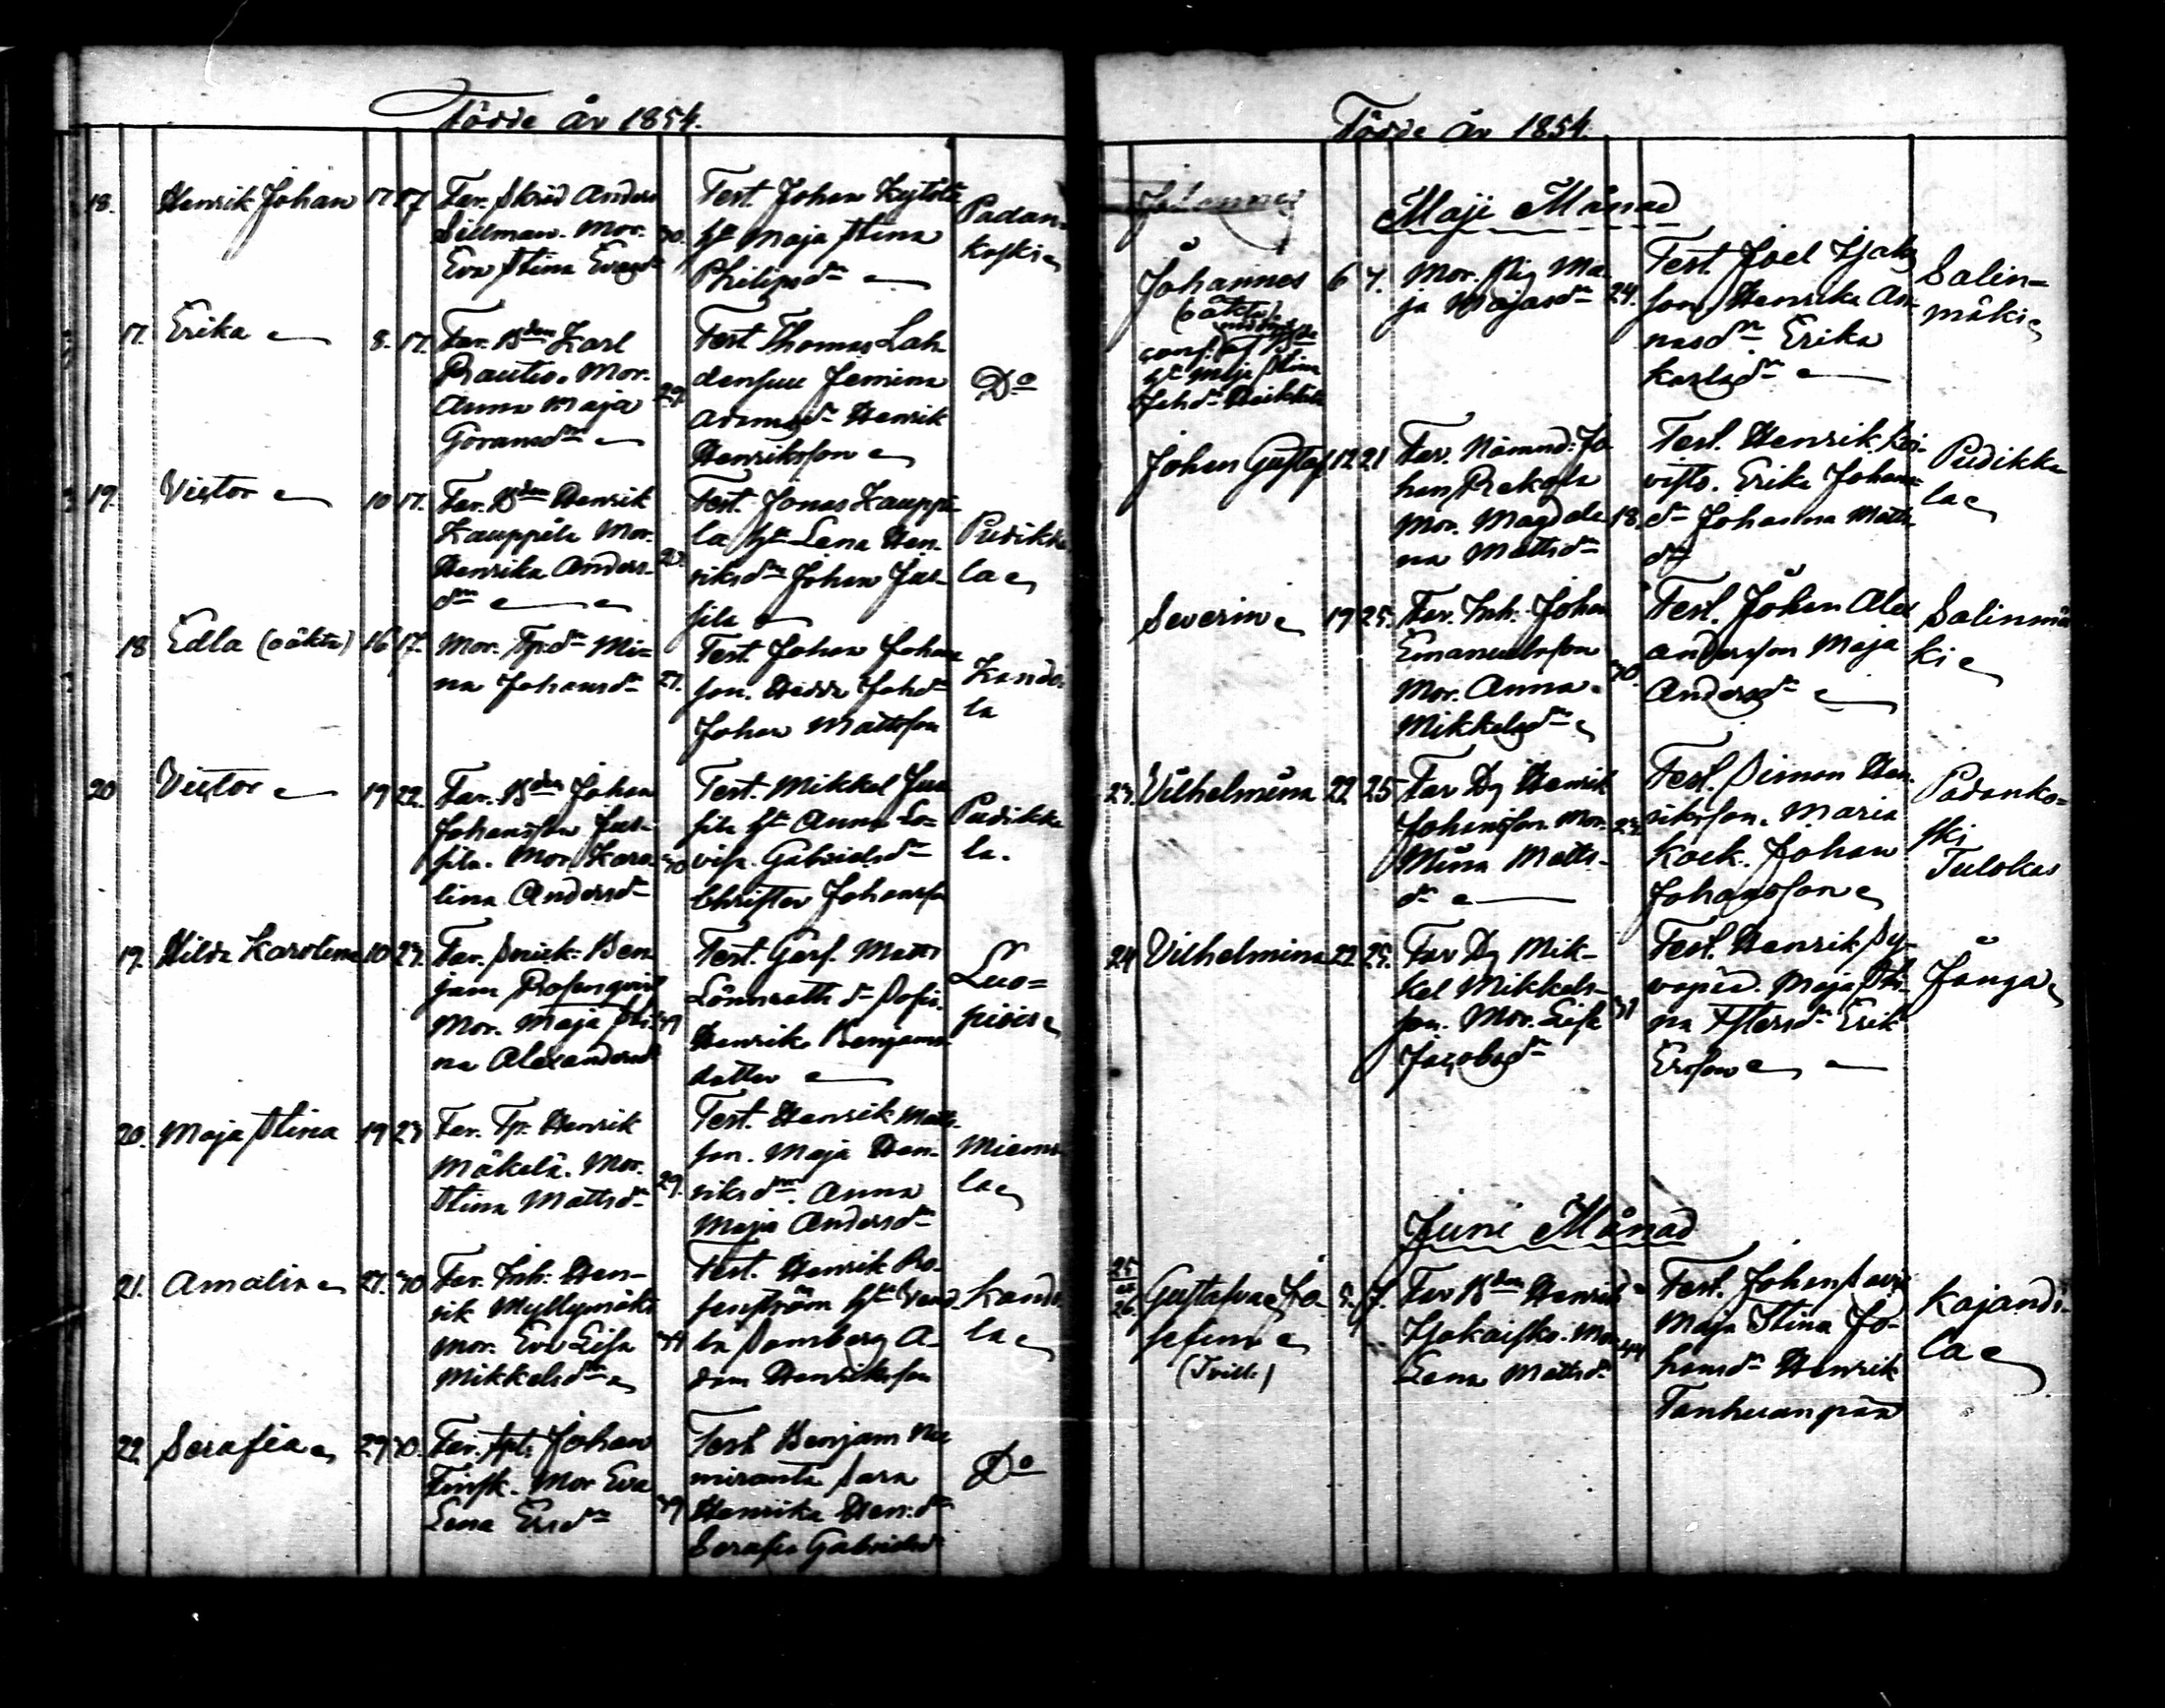 Födde år 1854.
18. Henrik Johan 17 17 Far. Skräd Anders
Sillman. Mor. 30.
Eva Stina Evasdr
Test. Johan Kyttölä
hu Maja Stina
Philipsdr
Padan-
koski
17. Erika 8. 17. Far. Bden Karl
Rautio. Mor.
Anna Maja 29
Göransdr
Test. Thomas Lah
densuu Jemina
Adamsdr Henrik
Henriksson
Do
19. Victor 10 17. Far. Bden Henrik
Kauppila Mor.
Henrika Anders-
dr
Test. Jonas Kauppi
la hu Lena Hen-
riksdr Johan Jus-
sila
Pudikka
la
18 Edla (oäkta) 16 17. Mor. Tp.dr Mi-
na Johansdr 27.
Test. Johan Johans
son. Hedda Johdr
Johan Mattsson
Kando
la
20 Victor 19 22. Far. Bden Johan
Johansson Jus-
sila. Mor. Karo-
lina Andersdr
Test. Mikkel Jus
sila hu Anna Lo-
visa Gabrielsdr
Christer Johansson
Pudikka
la.
19. Hilda Karolina 10 23. Far. Snick. Ben
jam Rosenqvist
Mor. Maja Sti-
na Alexandersdr
Test. Garf. Matts
Lönnroth dr Sofia
Henrika Benjams
dotter
Luo-
piois
20. Maja Stina 19 23 Far. Tp. Henrik
Mäkelä. Mor.
Stina Mattsdr 29.
Test. Henrik Matts
son. Maja Hen-
riksdr Anna
Maja Andersdr
Miemo
la
21. Amalia 27. 30 Far. Inh. Hen-
rik Myllymäki
Mor. Eva Lisa
Mikkelsdr
Test. Henrik Ro-
senström hu Vend
la Somberg A-
dam Henriksson
Kando
la
22. Serafia 29 30. Far. Johan
Finsk. Mor Eva
Lena Ersdr
Test Benjam Nie
miranta Sara
Henrika Hen.dr
Serafia Gabrielsdr
Do
Födde år 1854.
Johannes
Maji Månad
Johannes 6 7. Mor. Pig Ma-
(oäkta)
ja Majasdr 24.
hu Maja Stina
Johdr Heikkilä
Test. Joel Isaks
son, Henrika An-
nasdr Erika
Karlsdr
Salin-
mäki
Johan Gustaf 12 21 Far. Nämnd: Jo
han Prekola
Mor. Magdale 18.
na Mattsdr
Test. Henrik Koi-
visto. Erika Johans
dr Johanna Matts
dr
Pudikka
la
Severin 19 25. Far. Inh. Johan
Emanuelsson
Mor. Anna
Mikkelsdr
Test. Johan Alex
andersson Maja
Andersdr
Salinmä
ki
23. Vilhelmina 22 25 Far Dg Henrik
Johansson. Mor.
Mina Matts-
dr
Test. Simon Hen-
riksson. Maria
Kock. Johan
Johansson
Padanko-
ski
Tulokas
24 Vilhelmina 22 25. Far Dg Mik-
kel Mikkels-
son. Mor. Lisa 31
Jacobsdr
Test. Henrik Sy-
väpää. Maja Sti-
na Estersdr Erik
Ersson
Fånga
Juni Månad
25
et
26. Gustafva Jo- 5. 7. Far Bden Henrik
sefina
(Tvill.)
Isokaisko. Mor 44
Lena Mattsdr
Test. Johan
Maja Stina Jo-
hansdr Henrik
Tanhuanpää
Kajandi-
la